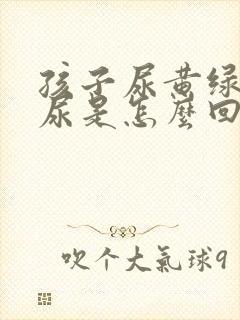 孩子尿黄绿
尿是怎麼回
吹个大氣球9